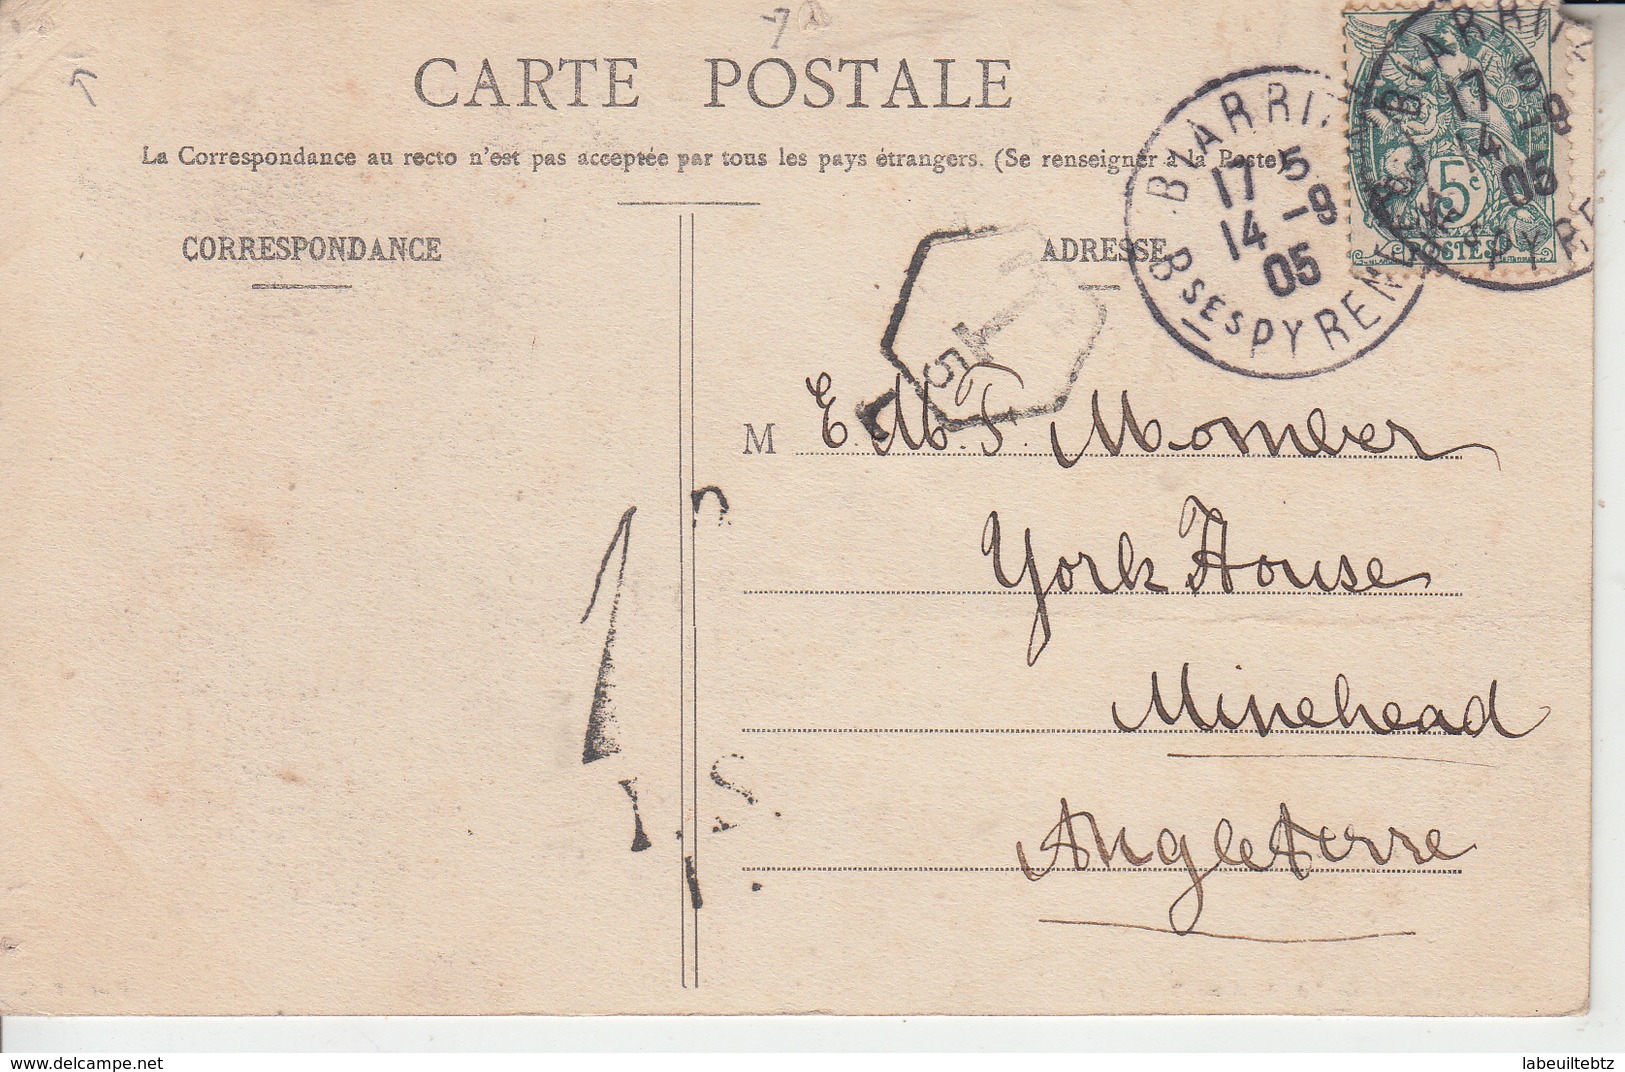 CARTE POSTALE
La Correspondance au recto n'est pas acceptée par tous les pays étrangers. (Se renseigner à la Poste)
CORRESPONDANCE
ADRESSE
BIARRITZ
17 5
14 -9
05
BSES PYRENEES
BIARRITZ
17 5
14 -9
05
5c
POSTES
T
5
M E. M. T. Momber
York House
Minehead
Angleterre
1D
I.S.
delcampe.net
labeuiltebtz